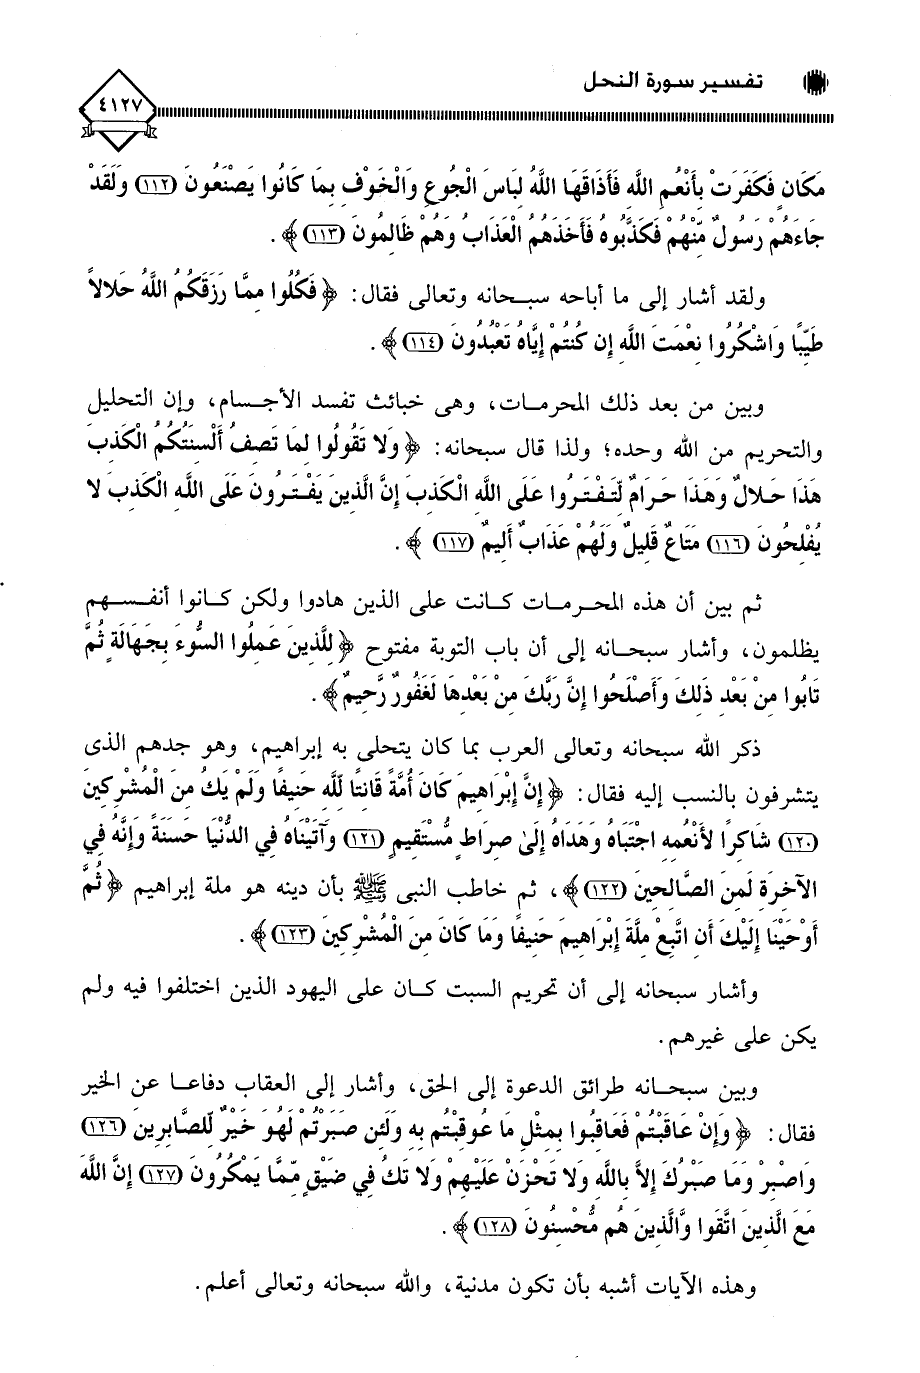 تفسير سورة النحل
٤١٢٧
مَكَانٍ فَكَفَرَتْ بِأَنْعُمِ اللَّهِ فَأَذَاقَهَا اللَّهُ لِبَاسَ الْجُوعِ وَالْخَوْفِ بِمَا كَانُوا يَصْنَعُونَ (١١٢) وَلَقَدْ
جَاءَهُمْ رَسُولٌ مِّنْهُمْ فَكَذَّبُوهُ فَأَخَذَهُمُ الْعَذَابُ وَهُمْ ظَالِمُونَ (١١٣)﴾.
ولقد أشار إلى ما أباحه سبحانه وتعالى فقال: ﴿فَكُلُوا مِمَّا رَزَقَكُمُ اللَّهُ حَلالاً
طَيِّبًا وَاشْكُرُوا نِعْمَتَ اللَّهِ إِن كُنتُمْ إِيَّاهُ تَعْبُدُونَ (١١٤)﴾.
وبين من بعد ذلك المحرمات، وهى خبائث تفسد الأجسام، وإن التحليل
والتحريم من الله وحده؛ ولذا قال سبحانه: ﴿وَلا تَقُولُوا لِمَا تَصِفُ أَلْسِنَتُكُمُ الْكَذِبَ
هَذَا حَلالٌ وَهَذَا حَرَامٌ لِّتَفْتَرُوا عَلَى اللَّهِ الْكَذِبَ إِنَّ الَّذِينَ يَفْتَرُونَ عَلَى اللَّهِ الْكَذِبَ لا
يُفْلِحُونَ (١١٦) مَتَاعٌ قَلِيلٌ وَلَهُمْ عَذَابٌ أَلِيمٌ (١١٧) ﴾.
ثم بين أن هذه المحرمات كانت على الذين هادوا ولكن كانوا أنفسهم
يظلمون، وأشار سبحانه إلى أن باب التوبة مفتوح ﴿لِلَّذِينَ عَمِلُوا السُّوءَ بِجَهَالَةٍ ثُمَّ
تَابُوا مِنْ بَعْدِ ذَلِكَ وَأَصْلَحُوا إِنَّ رَبَّكَ مِنْ بَعْدِهَا لَغَفُورٌ رَّحِيمٌ﴾.
ذكر الله سبحانه وتعالى العرب بما كان يتحلى به إبراهيم، وهو جدهم الذى
يتشرفون بالنسب إليه فقال: ﴿إِنَّ إِبْرَاهِيمَ كَانَ أُمَّةً قَانِتًا لِّلَّهِ حَنِيفًا وَلَمْ يَكُ مِنَ الْمُشْرِكِينَ
(١٢٠) شَاكِرًا لأَنْعُمِهِ اجْتَبَاهُ وَهَدَاهُ إِلَىٰ صِرَاطٍ مُّسْتَقِيمٍ (١٢١) وَآتَيْنَاهُ فِي الدُّنْيَا حَسَنَةً وَإِنَّهُ فِي
الآخِرَةِ لَمِنَ الصَّالِحِينَ (١٢٢)﴾، ثم خاطب النبى ﷺ بأن دينه هو ملة إبراهيم ﴿ثُمَّ
أَوْحَيْنَا إِلَيْكَ أَنِ اتَّبِعْ مِلَّةَ إِبْرَاهِيمَ حَنِيفًا وَمَا كَانَ مِنَ الْمُشْرِكِينَ (١٢٣)﴾.
وأشار سبحانه إلى أن تحريم السبت كان على اليهود الذين اختلفوا فيه ولم
يكن على غيرهم.
وبين سبحانه طرائق الدعوة إلى الحق، وأشار إلى العقاب دفاعا عن الخير
فقال: ﴿وَإِنْ عَاقَبْتُمْ فَعَاقِبُوا بِمِثْلِ مَا عُوقِبْتُم بِهِ وَلَئِن صَبَرْتُمْ لَهُوَ خَيْرٌ لِّلصَّابِرِينَ (١٢٦)
وَاصْبِرْ وَمَا صَبْرُكَ إِلاَّ بِاللَّهِ وَلا تَحْزَنْ عَلَيْهِمْ وَلا تَكُ فِي ضَيْقٍ مِّمَّا يَمْكُرُونَ (١٢٧) إِنَّ اللَّهَ
مَعَ الَّذِينَ اتَّقَوا وَّالَّذِينَ هُم مُّحْسِنُونَ (١٢٨)﴾.
وهذه الآيات أشبه بأن تكون مدنية، والله سبحانه وتعالى أعلم.